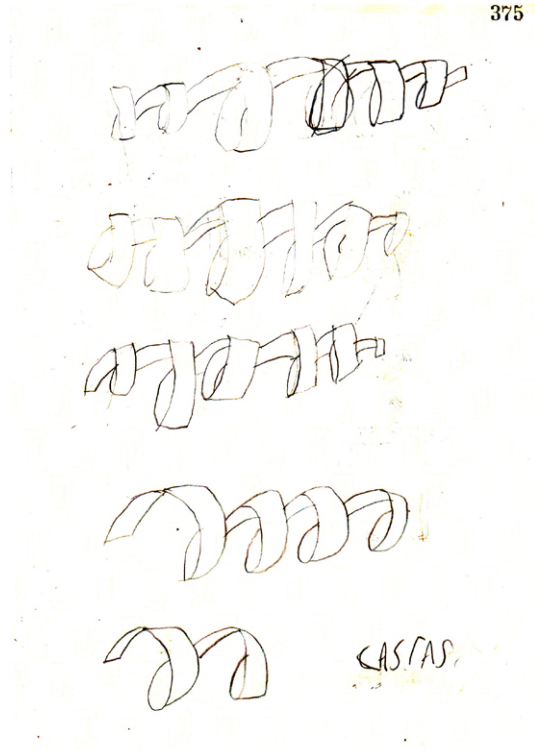 375
CASTAS.